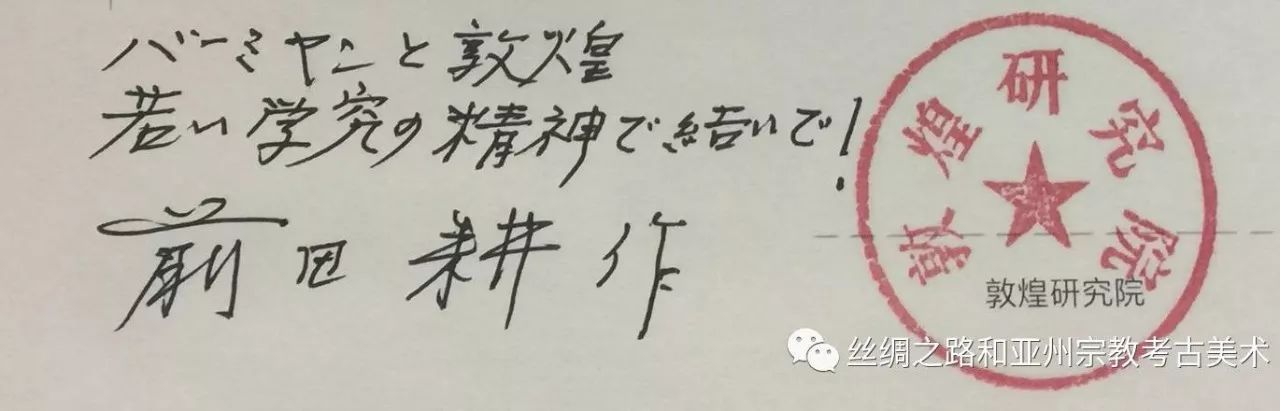 バーミヤンと敦煌
若い学究の精神で結いで!
前田耕作
敦煌研究院
敦煌研究院
丝绸之路和亚州宗教考古美术